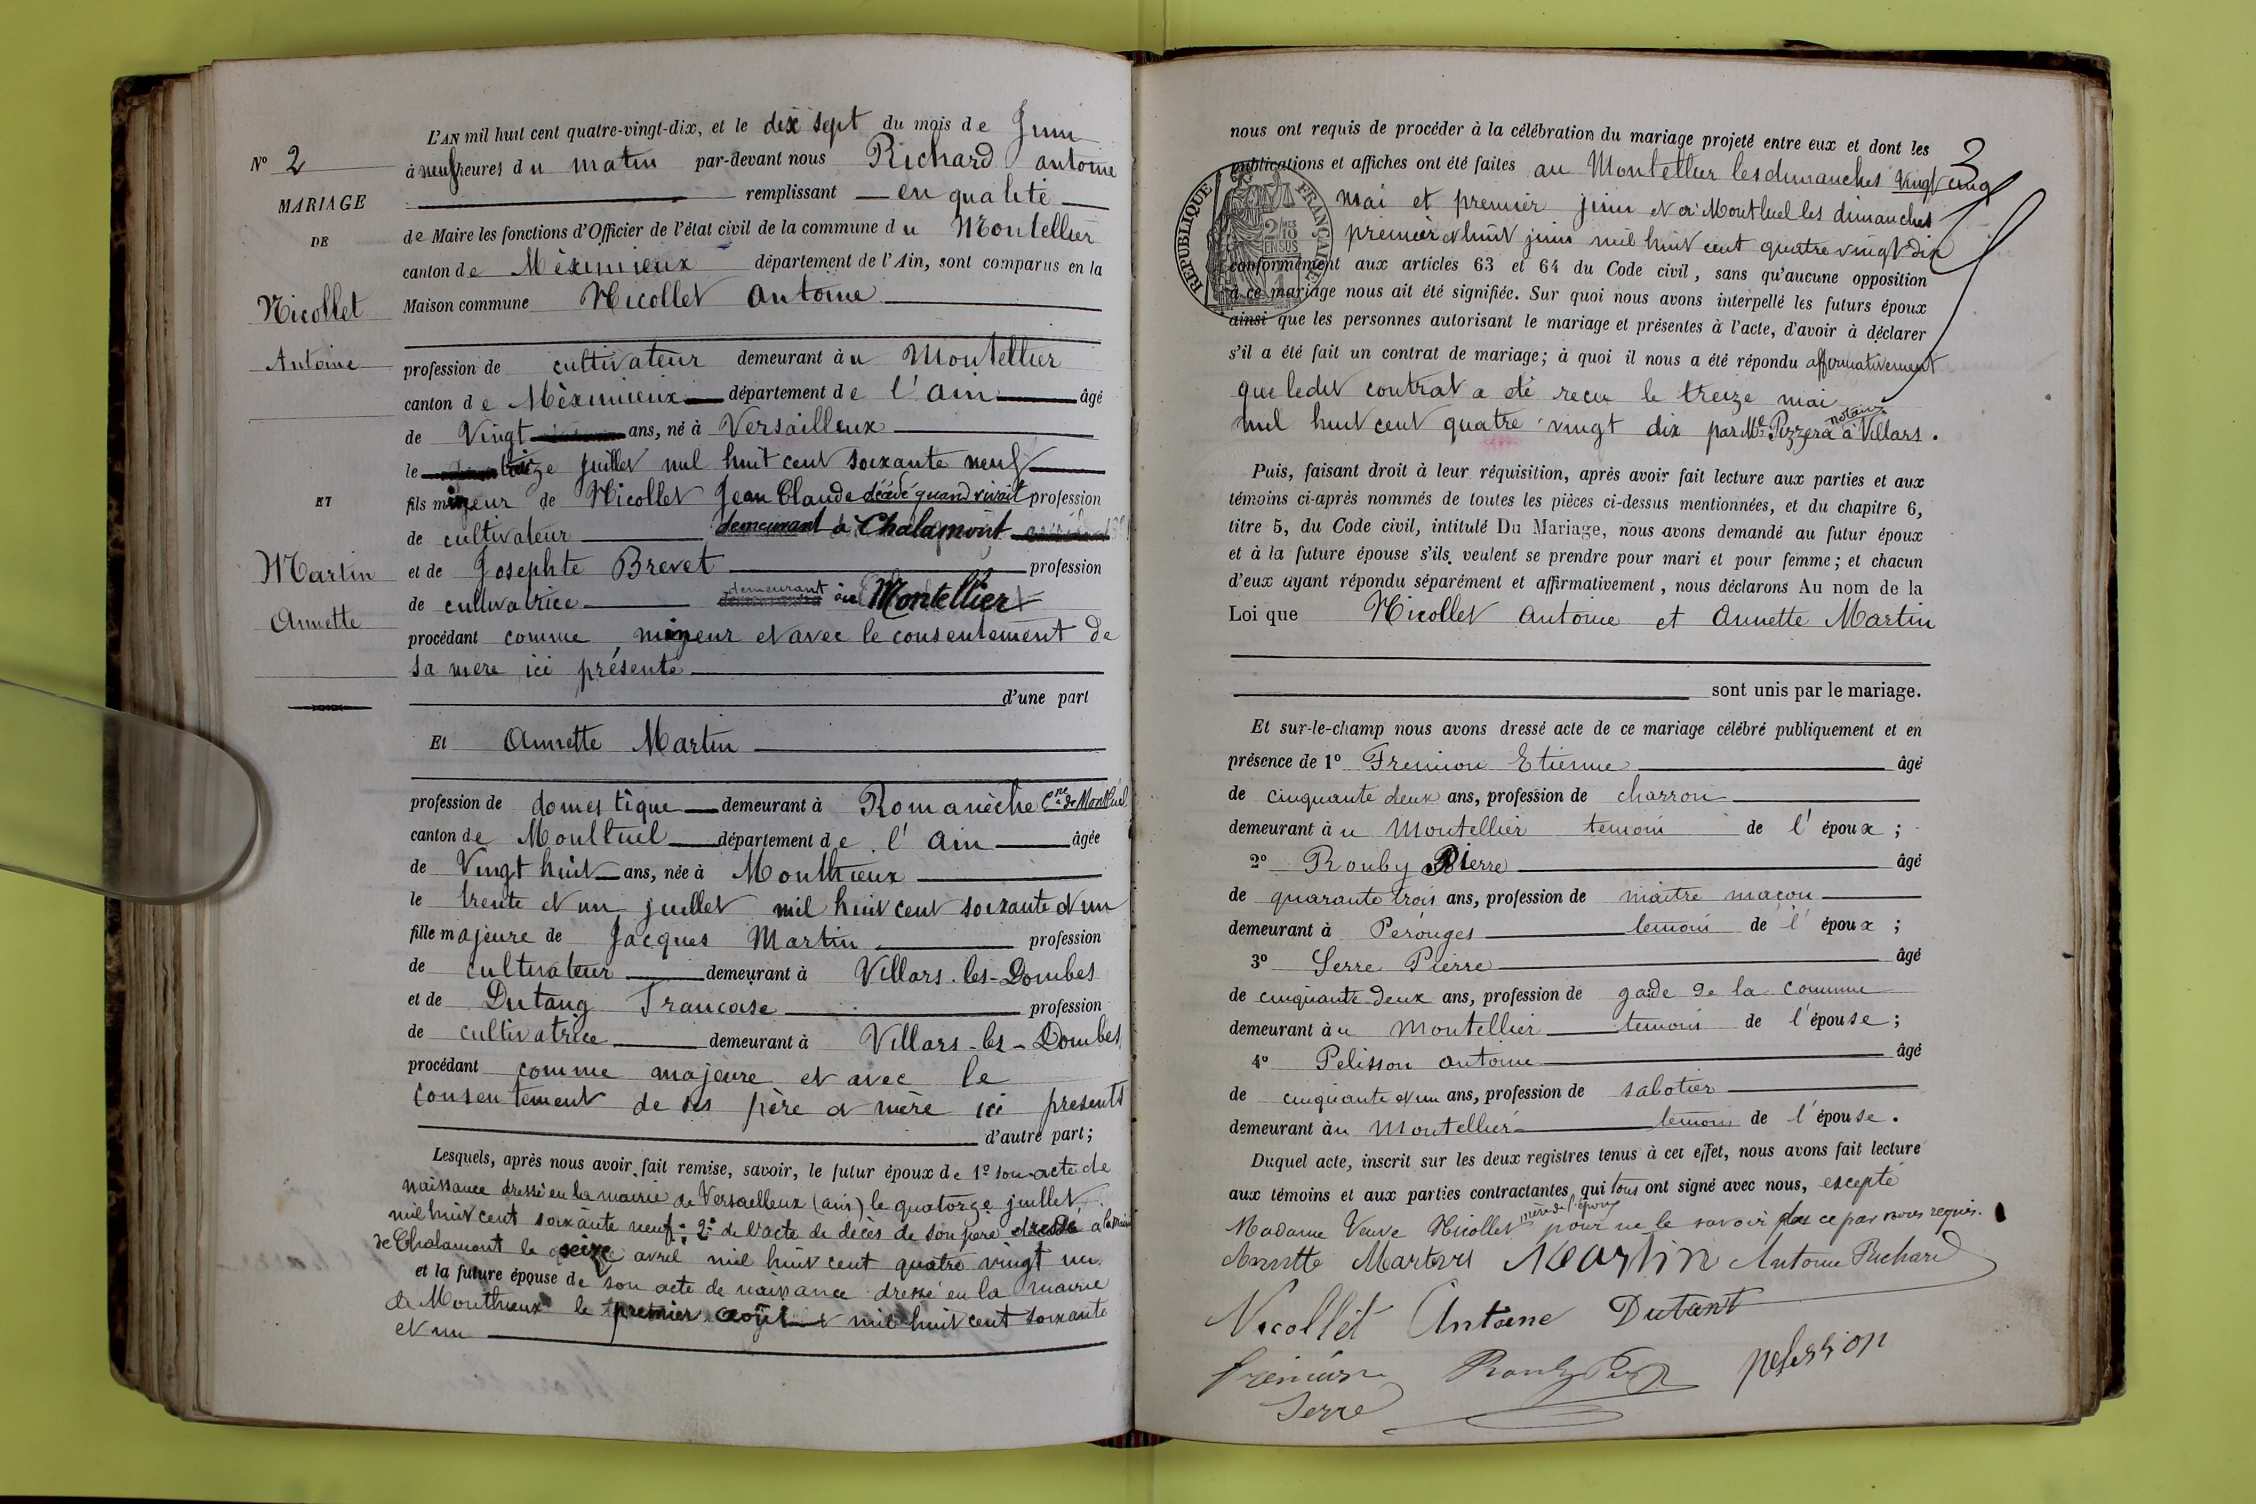 L'AN mil huit cent quatre-vingt-dix, et le dix sept du mois de Juin
N° 2
à neuf heures du matin par-devant nous Richard antoine
remplissant en qualité
MARIAGE
DE
de Maire les fonctions d'Officier de l'état civil de la commune du Montellier
canton de Méximieux département de l'Ain, sont comparus en la
Maison commune Nicollet Antoine
Nicollet
Antoine
profession de cultivateur demeurant àu Montellier
canton de Méximieux département de l'Ain âgé
de Vingt ans, né à Versailleux
le treize juillet mil huit cent soixante neuf
ET
fils mineur de Nicollet Jean Claude décédé quand vivait profession
de cultivateur demeurant à Chalamont
Martin
Annette
et de Josephte Brevet profession
de cultivatrice demeurant au Montellier
procédant comme mineur et avec le consentement de
sa mere ici présente
d'une part
Et Annette Martin
profession de domestique demeurant à Romanèche Cne de Montluel
canton de Montluel département de l'Ain âgée
de Vingt huit ans, née à Monthieux
le trente et un juillet mil huit cent soixante et un
fille majeure de Jacques Martin profession
de cultivateur demeurant à Villars-les-Dombes
et de Dutang Francoise profession
de cultivatrice demeurant à Villars-les-Dombes
procédant comme majeure et avec le
consentement de ses père et mère ici presents
d'autre part;
Lesquels, après nous avoir fait remise, savoir, le futur époux de 1° son acte de
naissance dressé en la mairie de Versailleux (ain) le quatorze juillet
mil huit cent soixante neuf; 2° de l'acte de décès de son père à la mairie
de Chalamont le seize avril mil huit cent quatre vingt un
et la future épouse de son acte de naissance dressé en la mairie
de Monthieux le premier août mil huit cent soixante
et un
3
nous ont requis de procéder à la célébration du mariage projeté entre eux et dont les
publications et affiches ont été faites au Montellier les dimanches vingt cinq
mai et premier juin et à Montluel les dimanches
premier et huit juin mil huit cent quatre vingt dix
conformément aux articles 63 et 64 du Code civil, sans qu'aucune opposition
à ce mariage nous ait été signifiée. Sur quoi nous avons interpellé les futurs époux
ainsi que les personnes autorisant le mariage et présentes à l'acte, d'avoir à déclarer
s'il a été fait un contrat de mariage; à quoi il nous a été répondu affirmativement
que ledit contrat a été recu le treize mai
mil huit cent quatre vingt dix par Me Pizzera notaire à Villars.
RÉPUBLIQUE FRANÇAISE
2/10 EN SUS
Puis, faisant droit à leur réquisition, après avoir fait lecture aux parties et aux
témoins ci-après nommés de toutes les pièces ci-dessus mentionnées, et du chapitre 6,
titre 5, du Code civil, intitulé Du Mariage, nous avons demandé au futur époux
et à la future épouse s'ils veulent se prendre pour mari et pour femme; et chacun
d'eux ayant répondu séparément et affirmativement, nous déclarons Au nom de la
Loi que Nicollet Antoine et Annette Martin
sont unis par le mariage.
Et sur-le-champ nous avons dressé acte de ce mariage célébré publiquement et en
présence de 1° Fremion Etienne âgé
de cinquante deux ans, profession de charron
demeurant àu Montellier temoin de l'époux;
2° Rouby Pierre âgé
de quarante trois ans, profession de maitre maçon
demeurant à Pérouges temoin de l'époux;
3° Serre Pierre âgé
de cinquante deux ans, profession de gade de la commune
demeurant àu Montellier temoin de l'épouse;
4° Pelisson antoine âgé
de cinquante et un ans, profession de sabotier
demeurant àu Montellier temoin de l'épouse.
Duquel acte, inscrit sur les deux registres tenus à cet effet, nous avons fait lecture
aux témoins et aux parties contractantes qui tous ont signé avec nous, excepté
Madame Veuve Nicollet mère de l'époux pour ne le savoir de ce par nous requis.
Annette Martin Martin Antoine Richard
Nicollet Antoine Dutant
fremion Rouby pelission
Serre